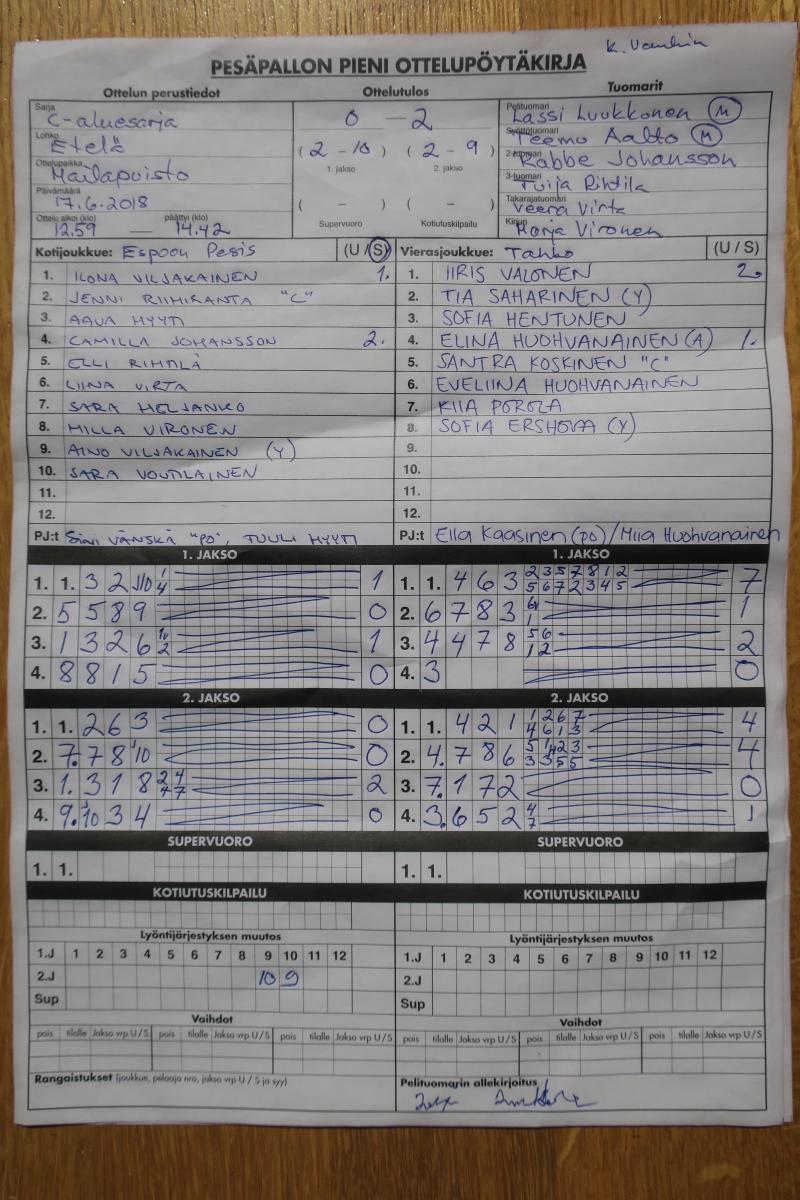 PESÄPALLON PIENI OTTELUPÖYTÄKIRJA
Ottelun perustiedot Ottelutulos Tuomarit
Sarja C-aluesarja
Lohko Etelä
Ottelupaikka Mailapuisto
Päivämäärä 17.6.2018
Ottelu alkoi (klo) päättyi (klo)
12.59 — 14.42
0 – 2
( 2 - 10 ) ( 2 - 9 )
1. jakso 2. jakso
( – ) ( – )
Supervuoro Kotiutuskilpailu
Pelituomari Lassi Luukkonen (M)
Syöttötuomari Teemo Aalto (M)
2-tuomari Kabbe Johansson
3-tuomari Tuija Rihtilä
Takarajatuomari Veera Virta
Kirjuri Marja Vironen
Kotijoukkue: Espoon Pesis (U / S) Vierasjoukkue: Tahko (U / S)
1. ILONA VILJAKAINEN 1. 1. IIRIS VALONEN 2.
2. JENNI RIIHIRANTA "C" 2. TIA SAHARINEN (Y)
3. AAVA HYYTI 3. SOFIA HENTUNEN
4. CAMILLA JOHANSSON 2. 4. ELINA HUOHVANAINEN (A) 1.
5. ELLI RIHTILÄ 5. SANTRA KOSKINEN "C"
6. LIINA VIRTA 6. EVELIINA HUOHVANAINEN
7. SARA HELJANKO 7. KIIA POROLA
8. MILLA VIRONEN 8. SOFIA ERSHOVA (Y)
9. AINO VILJAKAINEN (Y) 9.
10. SARA VOUTILAINEN 10.
11. 11.
12. 12.
PJ:t Sini VÄNSKÄ "PO", TUULI HYYTI PJ:t Ella Kaasinen (po) / Miia Huohvanainen
1. JAKSO 1. JAKSO
1. 1. 3 2 10 1 4 1 1. 1. 4 6 3 2 3 5 7 8 1 2 7
5 6 7 2 3 4 5
2. 5 5 8 9 0 2. 6 7 8 3 6 1 1
3. 1 3 2 6 1 2 1 3. 4 4 7 8 5 6 2
1 2
4. 8 8 1 5 0 4. 3 0
2. JAKSO 2. JAKSO
1. 1. 2 6 3 0 1. 1. 4 2 1 1 2 6 7 4
4 6 1 3
2. 7. 7 8 10 0 2. 4. 7 8 6 5 1 2 3 4
3 3 5 5
3. 1. 3 1 8 2 4 2 3. 7. 1 7 2 0
4 7
4. 9. 10 3 4 0 4. 3. 6 5 2 4 1
7
SUPERVUORO SUPERVUORO
1. 1. 1. 1.
KOTIUTUSKILPAILU KOTIUTUSKILPAILU
Lyöntijärjestyksen muutos Lyöntijärjestyksen muutos
1.J 1 2 3 4 5 6 7 8 9 10 11 12 1.J 1 2 3 4 5 6 7 8 9 10 11 12
2.J 10 9 2.J
Sup Sup
Vaihdot Vaihdot
pois tilalle Jakso vrp U / S pois tilalle Jakso vrp U / S pois tilalle Jakso vrp U / S pois tilalle Jakso vrp U / S pois tilalle Jakso vrp U / S pois tilalle Jakso vrp U / S
Rangaistukset (joukkue, pelaaja nro, jakso vrp U / S ja syy) Pelituomarin allekirjoitus